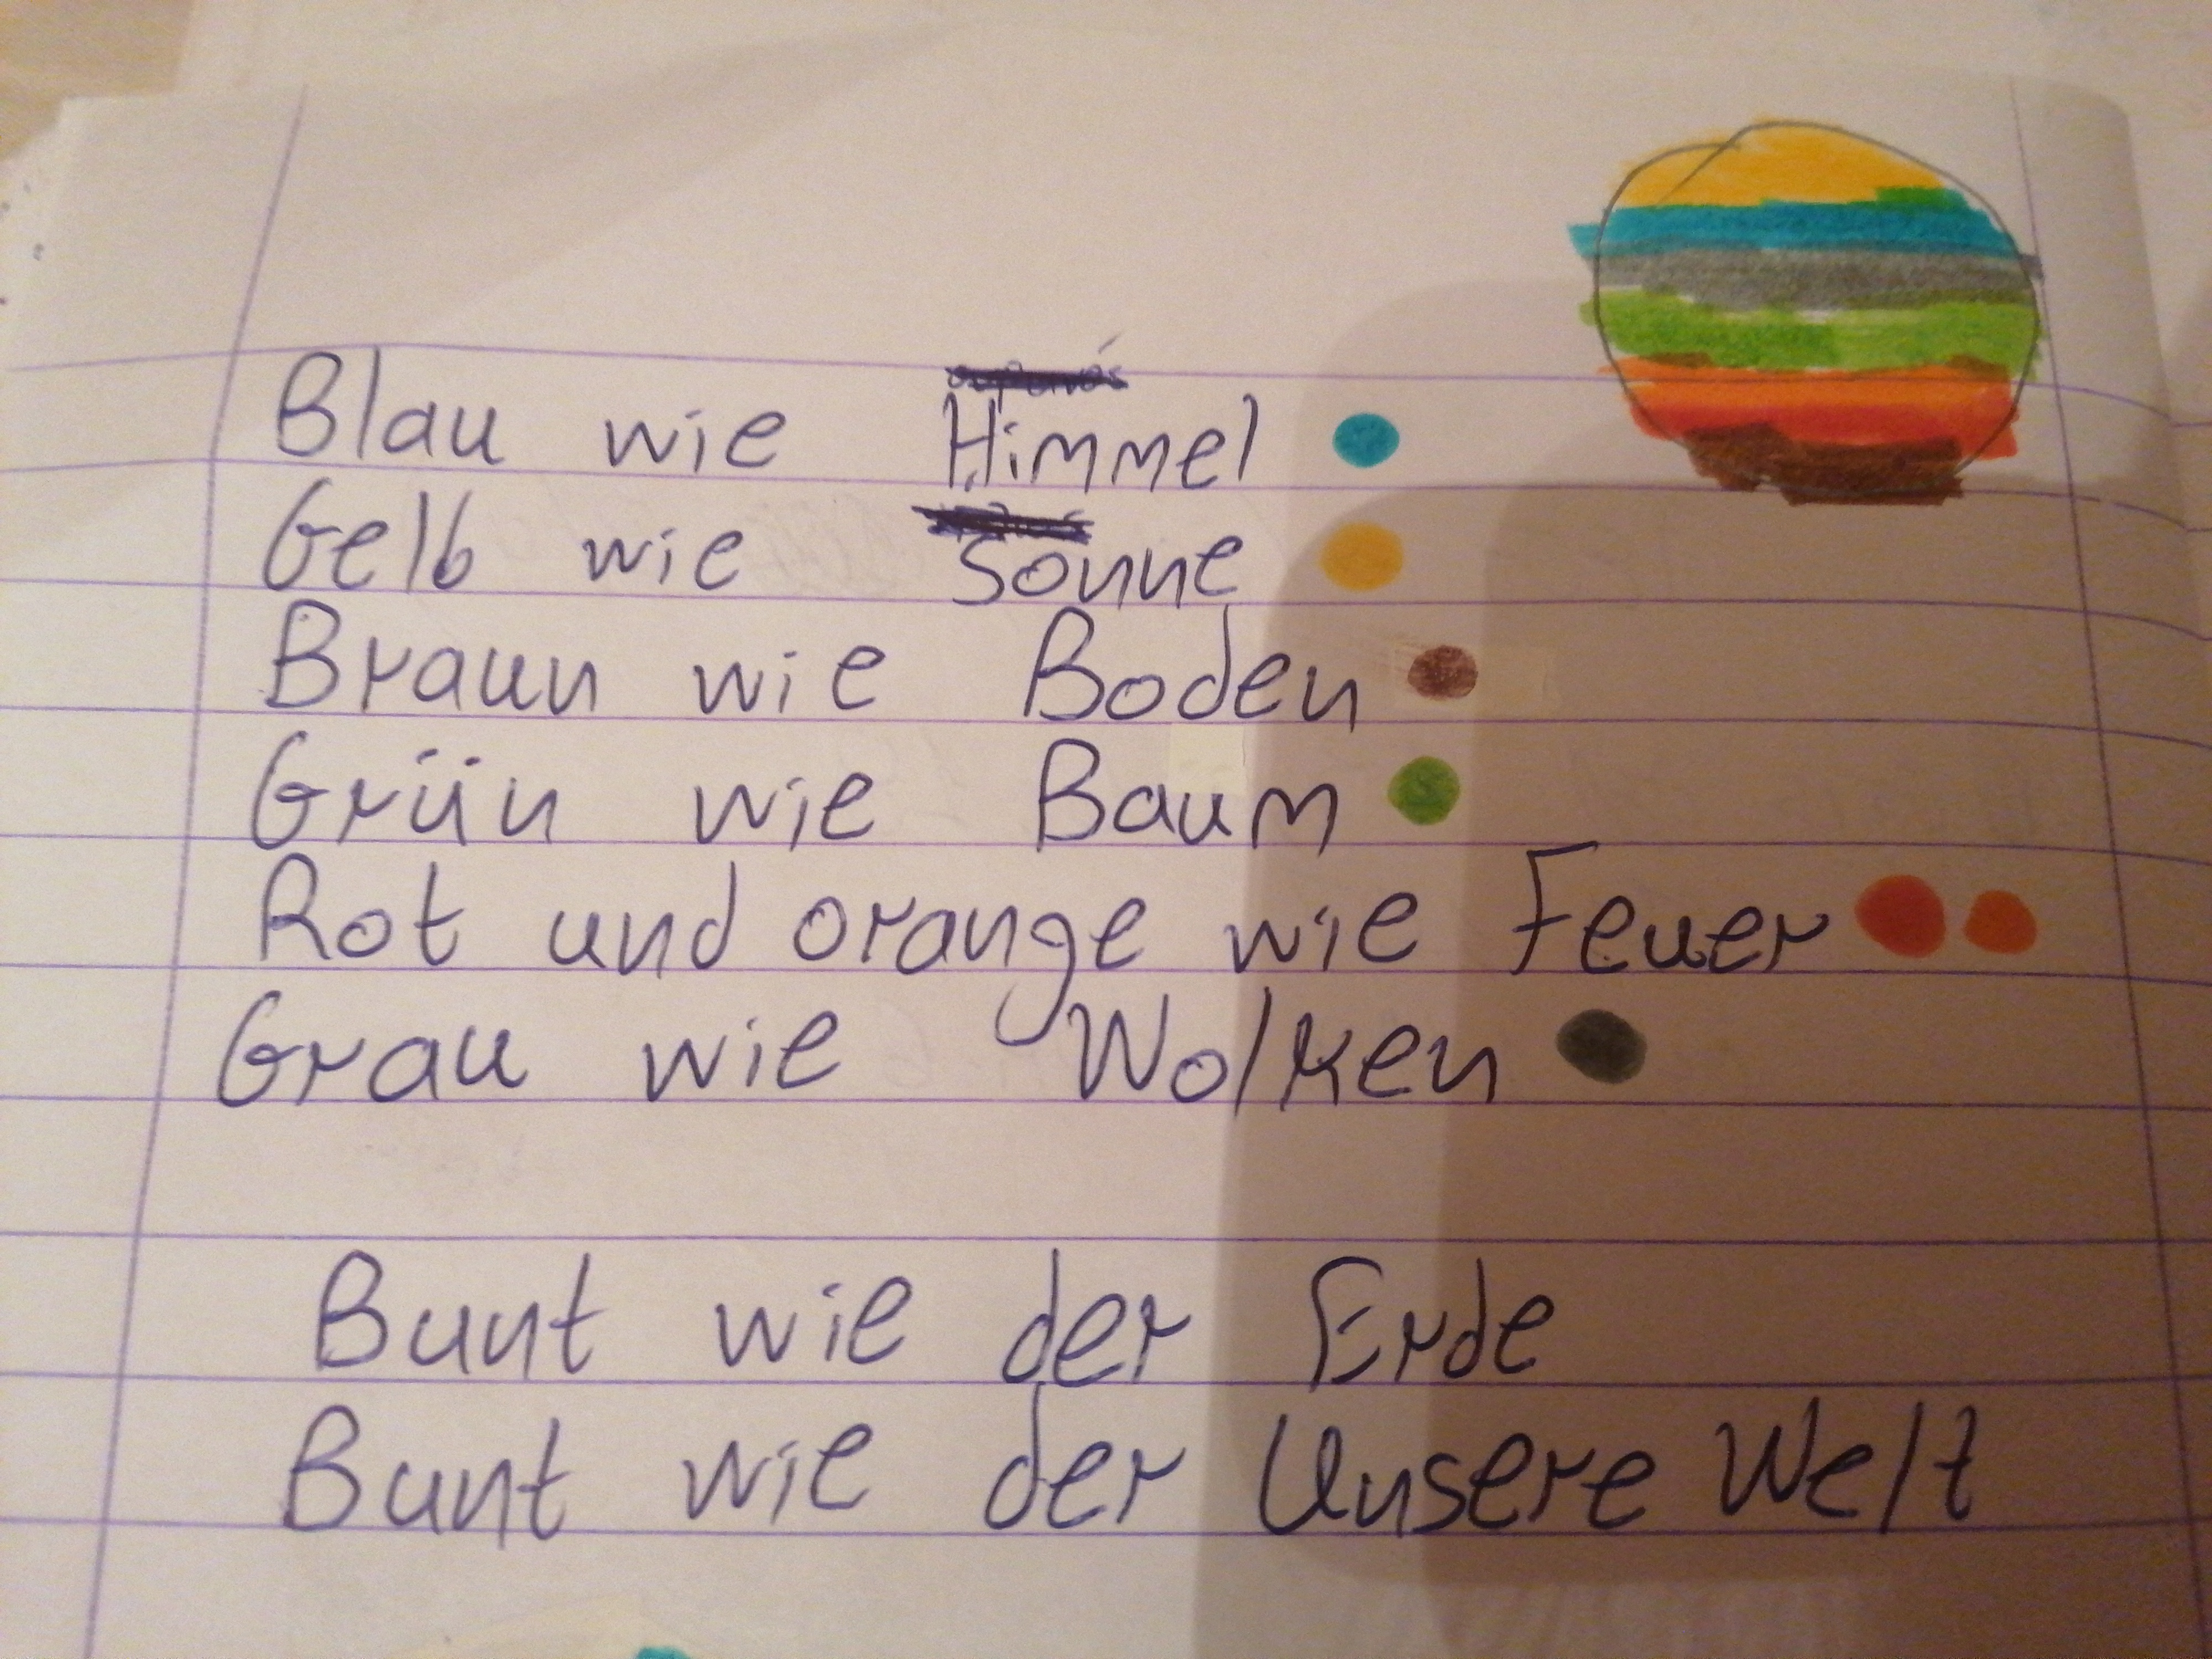 Blau wie Himmel
Gelb wie Sonne
Braun wie Boden
Grün wie Baum
Rot und orange wie Feuer
Grau wie Wolken
Bunt wie der Erde
Bunt wie der Unsere Welt